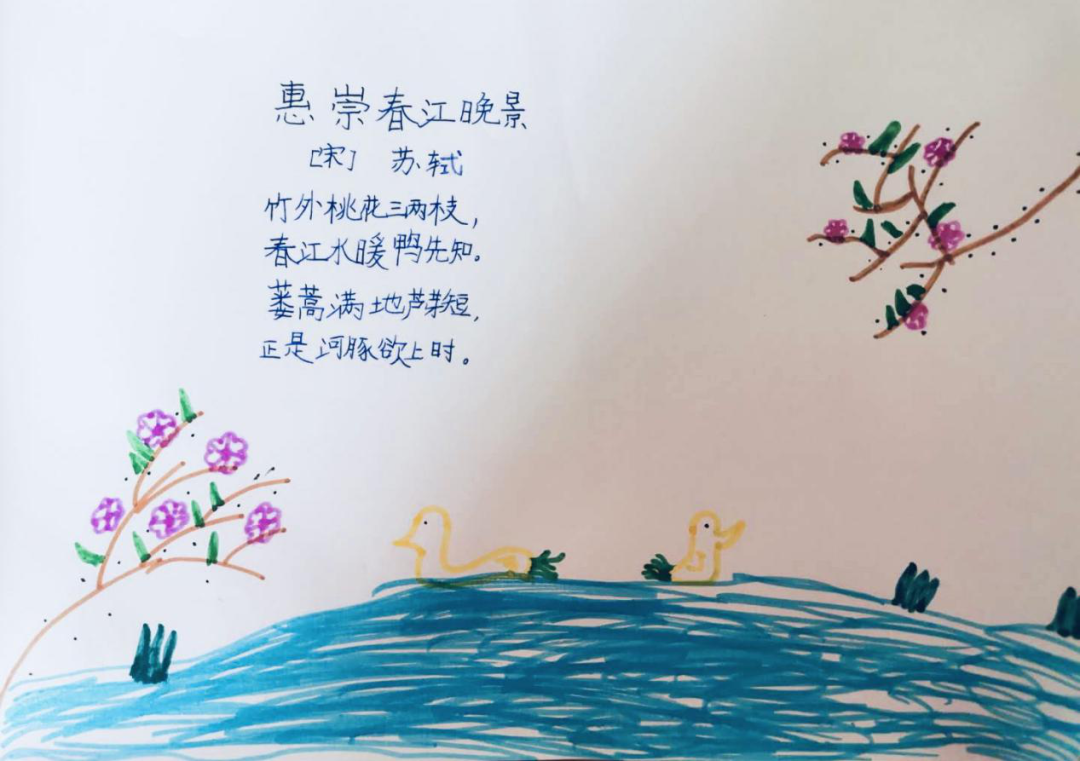 惠崇春江晚景
[宋] 苏轼
竹外桃花三两枝,
春江水暖鸭先知。
蒌蒿满地芦芽短,
正是河豚欲上时。